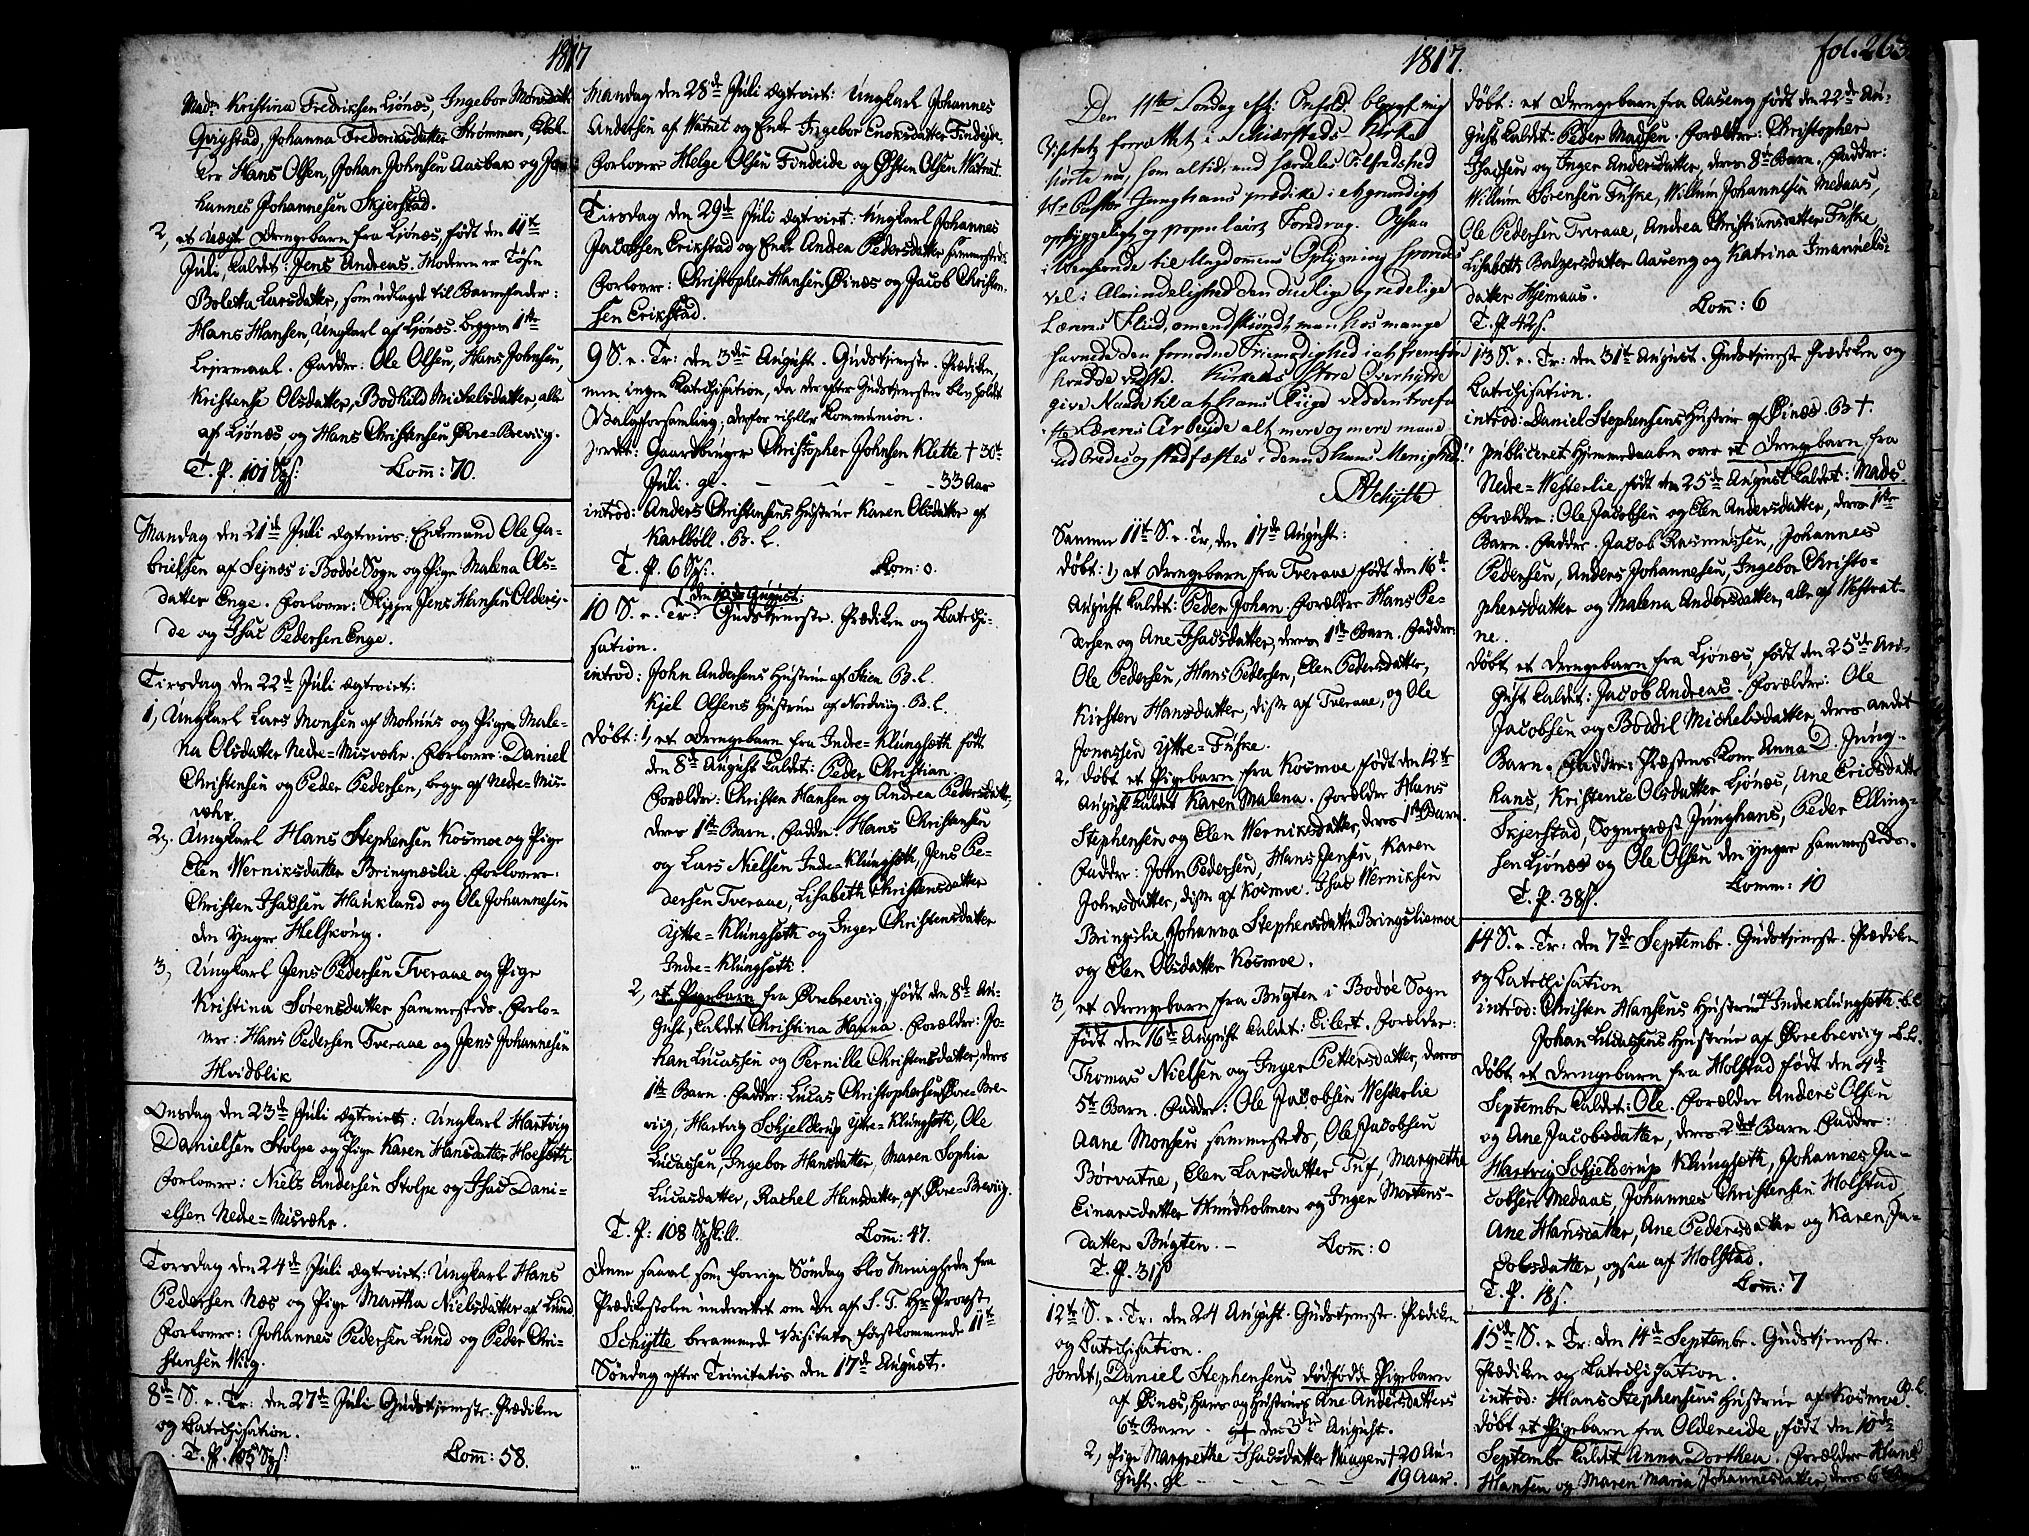 1817
Mad<sup>m</sup> Kristina Fredriksen Ljønæs, Ingebor Monsdatter
Gjøgstad, Johanna Frederiksdatter Strømmen,
ker Hans Olsen, Johan Johnsen Aasbak og Jo-
hannes Johannesen Skjerstad.
2, et Uægte Drengebarn fra Ljønæs, født den 11te
Juli, kaldet: Jens Andreas. Moderen er Tøsen
Boletta Larsdatter, som udlagde til Barnefader:
Hans Hansen, Ungkarl af Ljønæs. begges 1ste
Lejermaal. Fadder: Ole Olsen, Hans Johnsen,
Kristense Olsdatter, Bodhild Mickelsdatter, alle
af Ljønæs og Hans Christensen Øvre-Brevig.
T. P. 101 Sgs. Com: 70.
Mandag den 21de Juli ægtevies: Enkemand Ole Ga-
brielsen af Sejnæs i Bodøe Sogn og Pige Malena Ols-
datter Enge. Forlovere: Skipper Jens Hansen Olderei-
de og Isac Pedersen Enge.
Tirsdag den 22de Juli ægteviet:
1, Ungkarl Lars Monsen af Mohuus og Pigen Male-
na Olsdatter Nedre-Misvehr. Forlovere: Daniel
Christensen og Peder Pedersen, begge af Nedre-Mis-
vehr.
2, Ungkarl Hans Stephensen Kosmoe og Pige
Elen Werniksdatter Bringneslie. Forlovere:
Christen Isaksen Haukland og Ole Johannesen
den Yngre Helskoug.
3, Ungkarl Jens Pedersen Tveraae og Pige
Kristina Sørensdatter sammesteds. Forlo-
vere: Hans Pedersen Tveraae og Jens Johannesen
Hvidblik
Onsdag den 23de Juli ægteviet: Ungkarl Hartvig
Danielsen Stolpe og Pige Karen Hansdatter Hoeseth
Forlovere: Niels Andersen Stolpe og Isac Dani-
elsen Nedre-Misvehr.
Torsdag den 24de Juli ægteviet: Ungkarl Hans
Pedersen Næs og Pige Martha Nielsdatter af Lund
Forlovere: Johannes Pedersen Lund og Peder Chri-
stensen Wiig.
8de S. e. Tr. den 27de Juli Gudstjeneste. Prædiken
og Catechisation.
T. P. 105 Sgs. Com: 58.
Mandag den 28de Juli ægteviet: Ungkarl Johannes
Andersen af Watnet og Enke Ingebor Enoksdatter Findeide.
Forlovere Helge Olsen Findeide og Østen Olsen Watnet.
Tirsdag den 29de Juli ægteviet: Ungkarl Johannes
Jacobsen Erikstad og Enke Andrea Pedersdatter sammesteds.
Forlovere: Christopher Hansen Øinæs og Jacob Christen-
sen Erikstad.
9 S. e. Tr: den 3die August. Gudstjeneste. Prædiken,
men ingen Catechisation, da derefter Gudstjenesten blev holdt
Valgforsamling; derfor ei heller Communion.
Jordet: Gaardbruger Christopher Johnsen Klette + 30te
Juli. gl. - - - - 33 Aar
introd: Anders Christensens Hustrue Karen Olsdatter af
Karlbøll. B. L.
T. P. 6 Sgs. Com: 0.
den 10de August:
10 S. e. Tr: Gudstjeneste. Prædiken og Catechi-
sation.
introd: John Andersens Hustrue af Skien B. L.
Kjel Olsens Hustrue af Nordvig. B. L.
døbt: 1, et Drengebarn fra Indre-Klungseth født
den 8de August kaldet: Peder Christian.
Forældre: Christen Hansen og Andrea Pedersdatter,
deres 1ste Barn. Fadder. Hans Christensen
og Lars Nielsen Indre-Klungseth, Jens Pe-
dersen Tveraae, Lisabeth Christensdatter
Ytre-Klungseth og Inger Christensdatter
Indre-Klungseth.
2, et Pigebarn fra Øvrebrevig, født den 8de Au-
gust, kaldet Christina Hanna. Forældre: Jo-
han Lucassen og Pernille Christensdatter, deres
1ste Barn. Fadder: Lucas Christophersen Øvre-Bre-
vig, Hartvig Schjelderup Ytre-Klungseth, Ole
Lucassen, Ingebor Hansdatter, Maren Sophia
Lucasdatter, Rachel Hansdatter, af Øvre-Brevig.
T. P: 108 Sgskill. Com: 47.
Denne saavel som forrige Søndag blev Menigheden fra
Prædikestolen underrettet om den af S. T. Hr Provst
Schytte berammede Visitats førstkommende 11te
Søndag efter Trinitatis den 17de August.
1817.
fol. 263.
Den 11te Søndag eft: blev af mig
Visitats forrettet i Skierstads Kirke
hørte nu, som altid, med særdeles Tilfredshed
Hr Pastor Junghans prædike i et grundigt
opbyggeligt og populairt Foredrag. Ogsaa
i Henseende til Ungdommens Oplysning spores
vel i Almindelighed den duelige og redelige
Lærers Fliid, omendskiøndt man hos mange
savnede den fornødne Friemodighed i at fremføre
hvad de vidste. Kirkens Store Overhyrde
give Naade til at hans Riige ved den troefa-
ste Lærers Arbejde alt mere og mere maae
udbredes og stadfæstes i denne hans Menighed!
Schytte
Samme 11te S. e. Tr, den 17de August:
døbt: 1, et Drengebarn fra Tveraae født den 16de
August kaldet: Peder Johan. Forældre Hans Pe-
dersen og Ane Isacsdatter, deres 1ste Barn. Fadder:
Ole Pedersen, Hans Pedersen, Elen Pedersdatter,
Kirsten Hansdatter, disse af Tveraae, og Ole
Jonassen Ytre-Fuske.
2, døbt et Pigebarn fra Kosmoe født den 12te
August kaldet Karen Malena. Forældre Hans
Stephensen og Elen Werniksdatter, deres 1ste Barn.
Fadder: John Pedersen, Hans Jensen, Karen
Johnsdatter, disse af Kosmoe. Isac Werniksen
Bringslie, Johanna Stephensdatter Bringsliemoe
og Elen Olsdatter Kosmoe.
3, et Drengebarn fra Bugten i Bodøe Sogn
født den 16de August kaldet: Eilert. Forældre:
Thomas Nielsen og Inger Pettersdatter, deres
5te Barn. Fadder: Ole Jacobsen Westerlie
Aane Monsen sammesteds, Ole Jacobsen
Børvatne, Elen Larsdatter Tuf, Margrethe
Einarsdatter Hundholmen og Inger Mortens-
datter Bugten. - Com: 0
T. P. 31 s
12te S. e. Tr: den 24 August. Gudstjeneste. Prædiken
og Catechisation.
Jordet: 1, Daniel Stephensens dødfødde Pigebarn
af Øinæs, hans og Hustrues Ane Andersdatters
6te Barn. + den 3die August.
2, Pige Margrethe Isacsdatter Naugen + 20 Au-
gust. gl. - - - - 19 Aar.
døbt: et Drengebarn fra Aaseng født den 22de Au-
gust kaldet: Peder Madsen. Forældre: Christopher
Isacsen og Inger Andersdatter, deres 8de Barn. Fadder:
Willum Sørensen Fuske, Willum Johannesen Medaas,
Ole Pedersen Tveraae, Andrea Christiansdatter Fuske,
Lisabeth Baltzersdatter Aaseng og Katrina Imanuels-
datter Hjemaas.
T. P. 42 s. Com: 6
13 S. e. Tr: den 31te August. Gudstjeneste Prædiken og
Catechisation.
introd: Daniel Stephensens Hustrue af Øinæs. B +.
publiceret Hjemmedaaben over et Drengebarn fra
Nedre-Westerlie, født den 25de August kaldet: Mads.
Forældre: Ole Jacobsen og Elen Andersdatter, deres 1ste
Barn. Fadder. Jacob Rasmussen, Johannes
Pedersen, Anders Johannesen, Ingebor Christo-
phersdatter og Malena Andersdatter, alle af Westvat-
ne.
døbt et Drengebarn fra Ljønæs, født den 25de Au-
gust kaldet: Jacob Andreas. Forældre: Ole
Jacobsen og Boddil Michelsdatter, deres andet
Barn. Fadder: Præstens Kone Anna D. Jung-
hans, Kristence Olsdatter Ljønæs, Ane Ericsdatter
Skjerstad, Sognepræst Junghans, Peder Elling-
sen Ljønæs og Ole Olsen den Yngre sammesteds.
T. P. 38 s. Comm: 10
14 S. e. Tr: den 7de Septembr. Gudstjeneste. Prædiken
og Catechisation
introd: Christen Hansens Hustrue af Indreklungseth B. L.
Johan Lucassens Hustrue af Øvrebrevig B. L.
døbt et Drengebarn fra Holstad født den 4de
Septembr kaldet: Ole. Forældre Anders Olsen
og Ane Jacobsdatter, deres 2det Barn. Fadder:
Hartvig Schjelderup Klungseth, Johannes Ja-
cobsen Medaas, Johannes Christensen Holstad,
Ane Hansdatter, Ane Pedersdatter og Karen Ja-
cobsdatter, ogsaa af Holstad.
T. P. 18 s. Com: 7
15de S. e. Tr: den 14de Septembr. Gudstjeneste.
Prædiken og Catechisation.
introd: Hans Stephensens Hustrue af Kosmoe. B. L.
døbt et Pigebarn fra Oldereide, født den 10de
Septembr kaldet Anna Dorthea. Forældre Hans
Hansen og Maren Maria Johannesdatter, deres 6te Barn